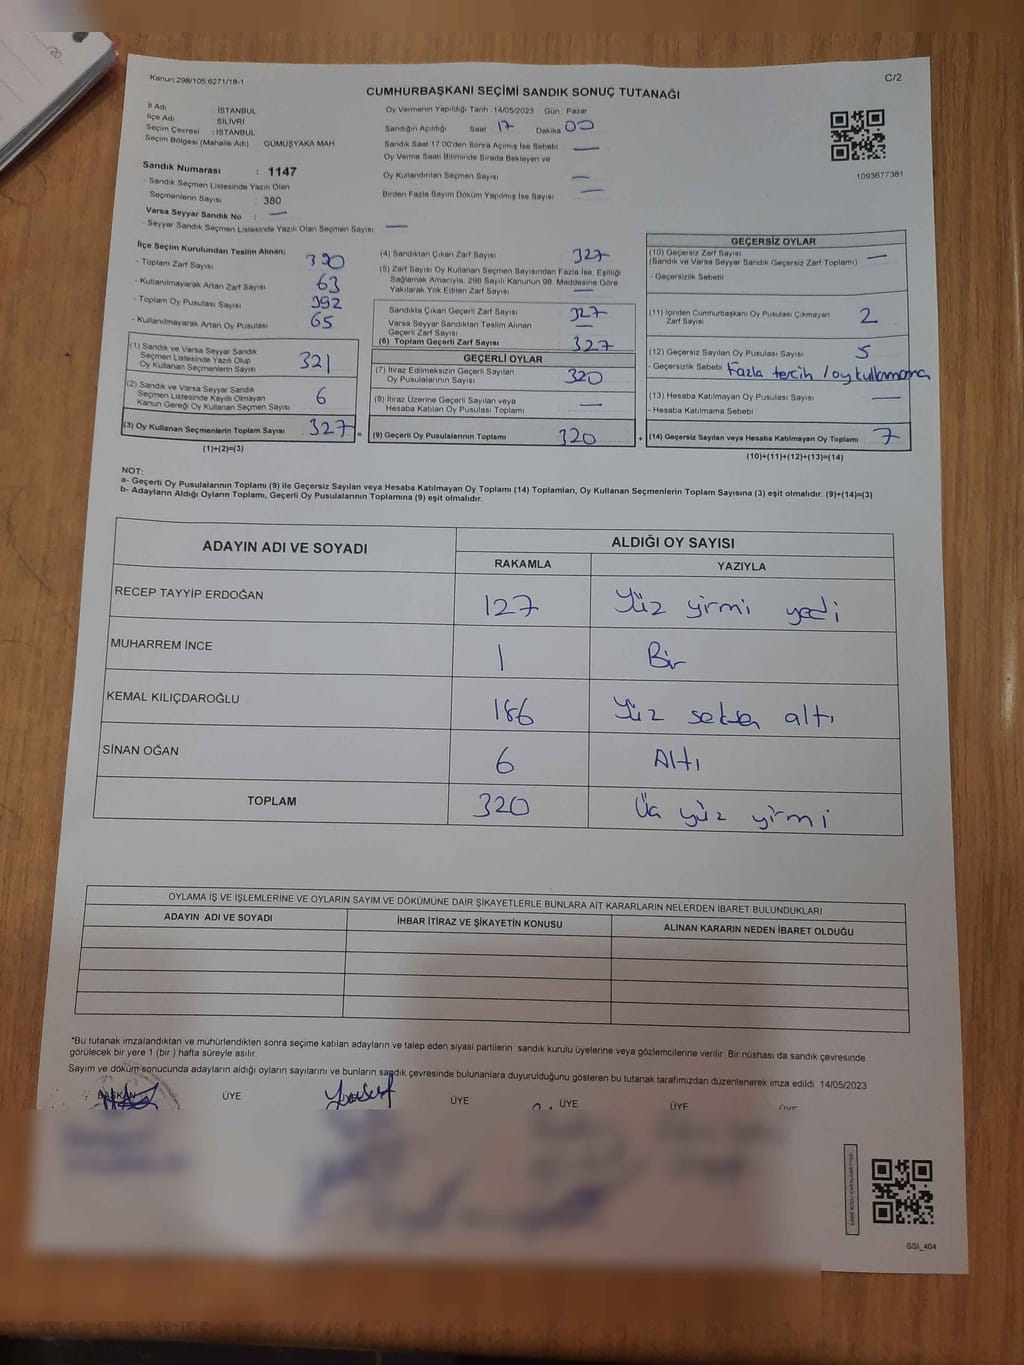 Kanun:298/105,6271/16-1
C/2
CUMHURBAŞKANI SEÇİMİ SANDIK SONUÇ TUTANAĞI
İl Adı : İSTANBUL
İlçe Adı : SİLİVRİ
Seçim Çevresi : İSTANBUL
Seçim Bölgesi (Mahalle Adı) GÜMÜŞYAKA MAH.
Oy Vermenin Yapıldığı Tarih 14/05/2023 Gün Pazar
Sandığın Açıldığı Saat 17 Dakika 00
Sandık Saat 17.00'den Sonra Açımış İse Sebebi —
Oy Verme Saati Bitiminde Sırada Bekleyen ve
Oy Kullandırılan Seçmen Sayısı —
Birden Fazla Sayım Döküm Yapılmış İse Sayısı —
1093677381
Sandık Numarası : 1147
- Sandık Seçmen Listesinde Yazılı Olan
Seçmenlerin Sayısı : 380
Varsa Seyyar Sandık No : —
- Seyyar Sandık Seçmen Listesinde Yazılı Olan Seçmen Sayısı : —
İlçe Seçim Kurulundan Teslim Alınan:
- Toplam Zarf Sayısı
- Kullanılmayarak Artan Zarf Sayısı 63
- Toplam Oy Pusulası Sayısı 392
- Kullanılmayarak Artan Oy Pusulası 65
(1) Sandık ve Varsa Seyyar Sandık
Seçmen Listesinde Yazılı Olup
Oy Kullanan Seçmenlerin Sayısı 321
(2) Sandık ve Varsa Seyyar Sandık
Seçmen Listesinde Kayıtlı Olmayan
Kanun Gereği Oy Kullanan Seçmen Sayısı 6
(3) Oy Kullanan Seçmenlerin Toplam Sayısı 327 =
(1)+(2)=(3)
(4) Sandıktan Çıkan Zarf Sayısı 327
(5) Zarf Sayısı Oy Kullanan Seçmen Sayısından Fazla İse, Eşitliği
Sağlamak Amacıyla, 298 Sayılı Kanunun 98. Maddesine Göre
Yakılarak Yok Edilen Zarf Sayısı —
Sandıkta Çıkan Geçerli Zarf Sayısı 327
Varsa Seyyar Sandıktan Teslim Alınan
Geçerli Zarf Sayısı —
(6) Toplam Geçerli Zarf Sayısı 327
GEÇERLİ OYLAR
(7) İtiraz Edilmeksizin Geçerli Sayılan
Oy Pusulalarının Sayısı 320
(8) İtiraz Üzerine Geçerli Sayılan veya
Hesaba Katılan Oy Pusulası Toplamı —
(9) Geçerli Oy Pusulalarının Toplamı 320 +
GEÇERSİZ OYLAR
(10) Geçersiz Zarf Sayısı
(Sandık ve Varsa Seyyar Sandık Geçersiz Zarf Toplamı) —
- Geçersizlik Sebebi
(11) İçinden Cumhurbaşkanı Oy Pusulası Çıkmayan
Zarf Sayısı 2
(12) Geçersiz Sayılan Oy Pusulası Sayısı 5
- Geçersizlik Sebebi Fazla tercih / oy kullanmama
(13) Hesaba Katılmayan Oy Pusulası Sayısı —
- Hesaba Katılmama Sebebi
(14) Geçersiz Sayılan veya Hesaba Katılmayan Oy Toplamı 7
(10)+(11)+(12)+(13)=(14)
NOT:
a- Geçerli Oy Pusulalarının Toplamı (9) ile Geçersiz Sayılan veya Hesaba Katılmayan Oy Toplamı (14) Toplamları, Oy Kullanan Seçmenlerin Toplam Sayısına (3) eşit olmalıdır. (9)+(14)=(3)
b- Adayların Aldığı Oyların Toplamı, Geçerli Oy Pusulalarının Toplamına (9) eşit olmalıdır.
ADAYIN ADI VE SOYADI ALDIĞI OY SAYISI
RAKAMLA YAZIYLA
RECEP TAYYİP ERDOĞAN 127 Yüz yirmi yedi
MUHARREM İNCE 1 Bir
KEMAL KILIÇDAROĞLU 186 Yüz seksen altı
SİNAN OĞAN 6 Altı
TOPLAM 320 Üç yüz yirmi
OYLAMA İŞ VE İŞLEMLERİNE VE OYLARIN SAYIM VE DÖKÜMÜNE DAİR ŞİKAYETLERLE BUNLARA AİT KARARLARIN NELERDEN İBARET BULUNDUKLARI
ADAYIN ADI VE SOYADI İHBAR İTİRAZ VE ŞİKAYETİN KONUSU ALINAN KARARIN NEDEN İBARET OLDUĞU
*Bu tutanak imzalandıktan ve mühürlendikten sonra seçime katılan adayların ve talep eden siyasi partilerin sandık kurulu üyelerine veya gözlemcilerine verilir. Bir nüshası da sandık çevresinde
görülecek bir yere 1 (bir ) hafta süreyle asılır.
Sayım ve döküm sonucunda adayların aldığı oyların sayılarını ve bunların sandık çevresinde bulunanlara duyurulduğunu gösteren bu tutanak tarafımızdan düzenlenerek imza edildi. 14/05/2023
BAŞKAN ÜYE ÜYE ÜYE ÜYE ÜYE
SSI_404